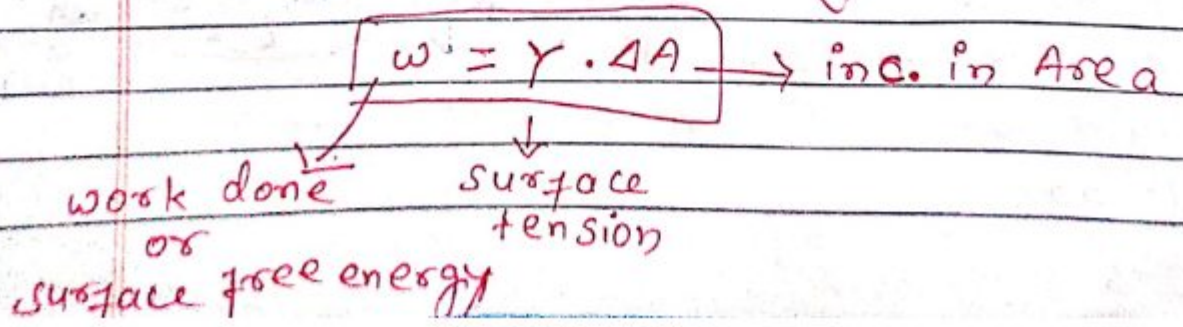 W = γ . ΔA → inc. in Area
work done
or
surface free energy
surface
tension